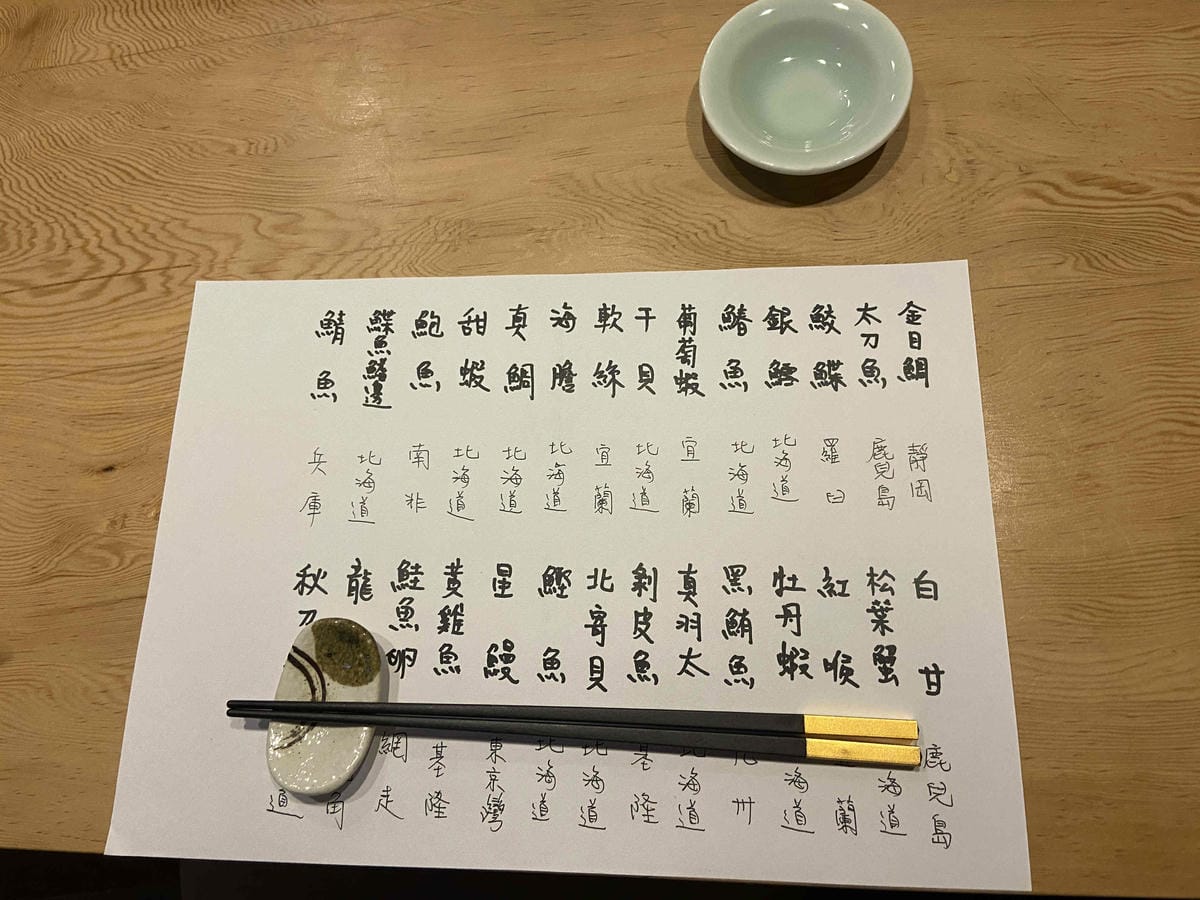 金目鯛
太刀魚
鮫鰈
銀鱈
鰆魚
葡萄蝦
干貝
軟絲
海膽
真鯛
甜蝦
鮑魚
鰈魚鰭邊
鯖魚
靜岡
鹿兒島
羅臼
北海道
北海道
宜蘭
北海道
宜蘭
北海道
北海道
北海道
南非
北海道
兵庫
白甘
松葉蟹
紅喉
牡丹蝦
黑鮪魚
真羽太
剝皮魚
北寄貝
鰹魚
星鰻
黃雞魚
鮭魚卵
龍
秋刀
鹿兒島
海道
蘭
海道
州
北海道
基隆
北海道
北海道
東京灣
基隆
網走
角
道